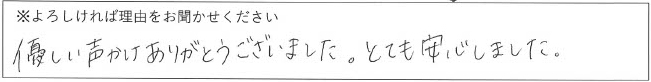 ※よろしければ理由をお聞かせください
優しい声かけありがとうございました。とても安心しました。